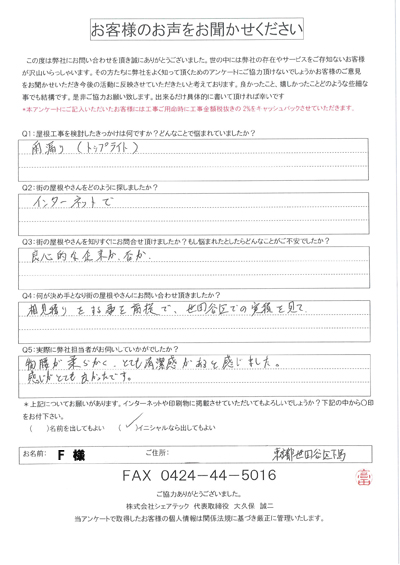 お客様のお声をお聞かせください
この度は弊社にお問い合わせを頂き誠にありがとうございました。世の中には弊社の存在やサービスをご存知ないお客様
が沢山いらっしゃいます。その方たちに弊社をよく知って頂くためのアンケートにご協力頂けないでしょうかお客様のご意見
をお聞かせいただき今後の活動に反映させていただきたいと考えております。良かったこと、嬉しかったことどのような些細な
事でも結構です。是非ご協力お願い致します。出来るだけ具体的に書いて頂ければ幸いです
*本アンケートにご記入いただいたお客様には工事ご用命時に工事金額税抜きの2%をキャッシュバックさせていただきます。
Q1:屋根工事を検討したきっかけは何ですか?どんなことで悩まれていましたか?
雨漏り(トップライト)
Q2:街の屋根やさんをどのように探しましたか?
インターネットで
Q3:街の屋根やさんを知りすぐにお問合せ頂けましたか?もし悩まれたとしたらどんなことがご不安でしたか?
良心的な企業か、否か。
Q4:何が決め手となり街の屋根やさんにお問い合わせ頂きましたか?
相見積りをする事を前提で、世田谷区での実績を見て
Q5:実際に弊社担当者がお伺いしていかがでしたか?
物腰が柔らかく、とても清潔感があると感じました。
感じがとても良かったです。
*上記についてお願いがあります。インターネットや印刷物に掲載させていただいてもよろしいでしょうか?下記の中から〇印
をお付下さい。
( )名前を出してもよい (✓)イニシャルなら出してもよい
お名前: F 様 ご住所: 東京都世田谷区下馬
FAX 0424-44-5016
ご協力ありがとうございました。
株式会社シェアテック 代表取締役 大久保 誠二
当アンケートで取得したお客様の個人情報は関係法規に基づき厳正に管理いたします。